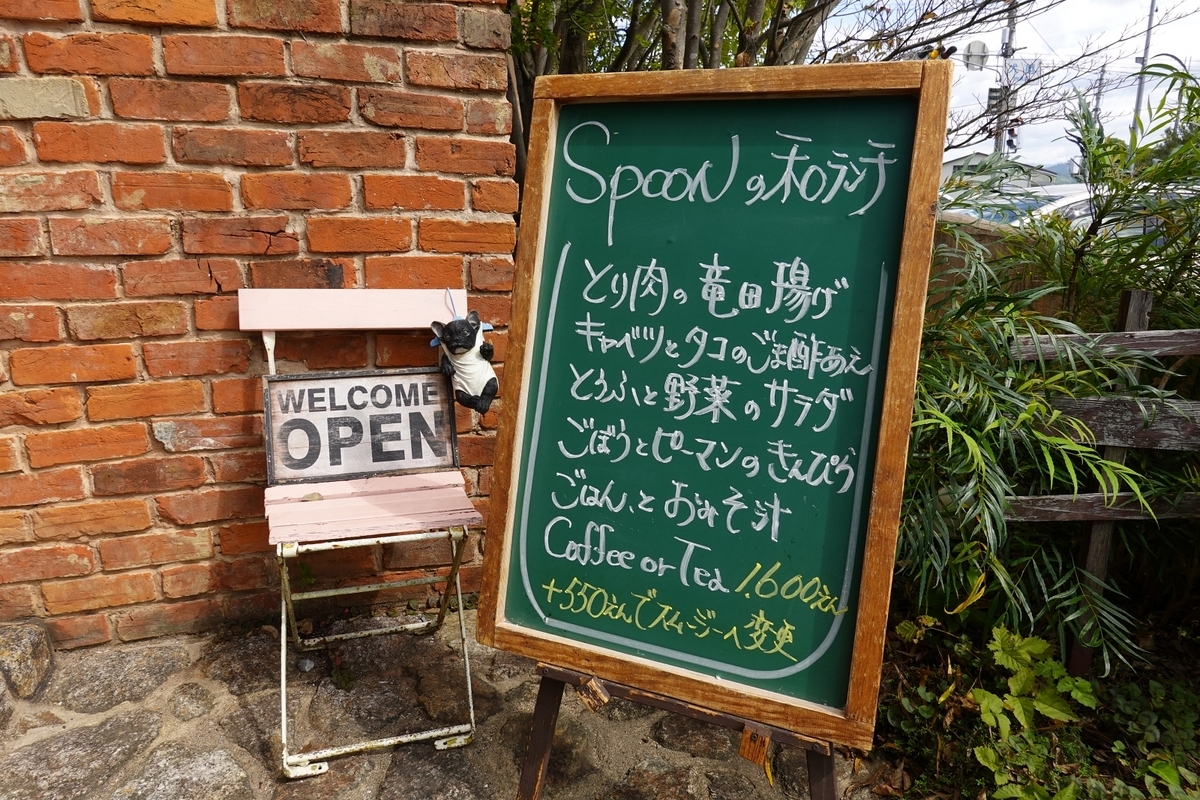 WELCOME
OPEN
Spoonの和ランチ
とり肉の竜田揚げ
キャベツとタコのごま酢あえ
とうふと野菜のサラダ
ごぼうとピーマンのきんぴら
ごはんとおみそ汁
Coffee or Tea 1.600えん
+550えんでスムージーへ変更